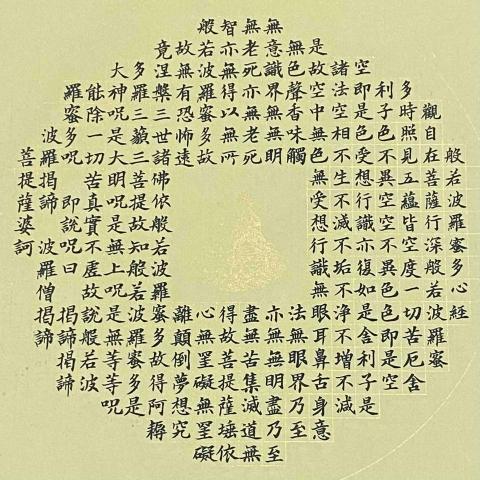 般若波羅蜜多心經
觀自在菩薩行深般若波羅蜜
多時照見五蘊皆空度一切苦厄舍
利子色不異空空不異色色即是空
空即是色受想行識亦復如是舍利子是
諸法空相不生不滅不垢不淨不增不減
是故空中無色無受想行識無眼耳鼻舌身意
無色聲香味觸法無眼界乃至
無意識界無無明亦無無明盡乃至
無老死亦無老死盡無苦集滅道無
智亦無得以無所得故菩提薩埵依
般若波羅蜜多故心無罣礙無罣礙
故無有恐怖遠離顛倒夢想究
竟涅槃三世諸佛依般若波羅蜜多故得阿耨
多羅三藐三菩提故知般若波羅蜜多是
大神呪是大明呪是無上呪是無等等呪
能除一切苦真實不虛故說般若波
羅蜜多呪即說呪曰揭諦揭諦
波羅揭諦波羅僧揭諦
菩提薩婆訶